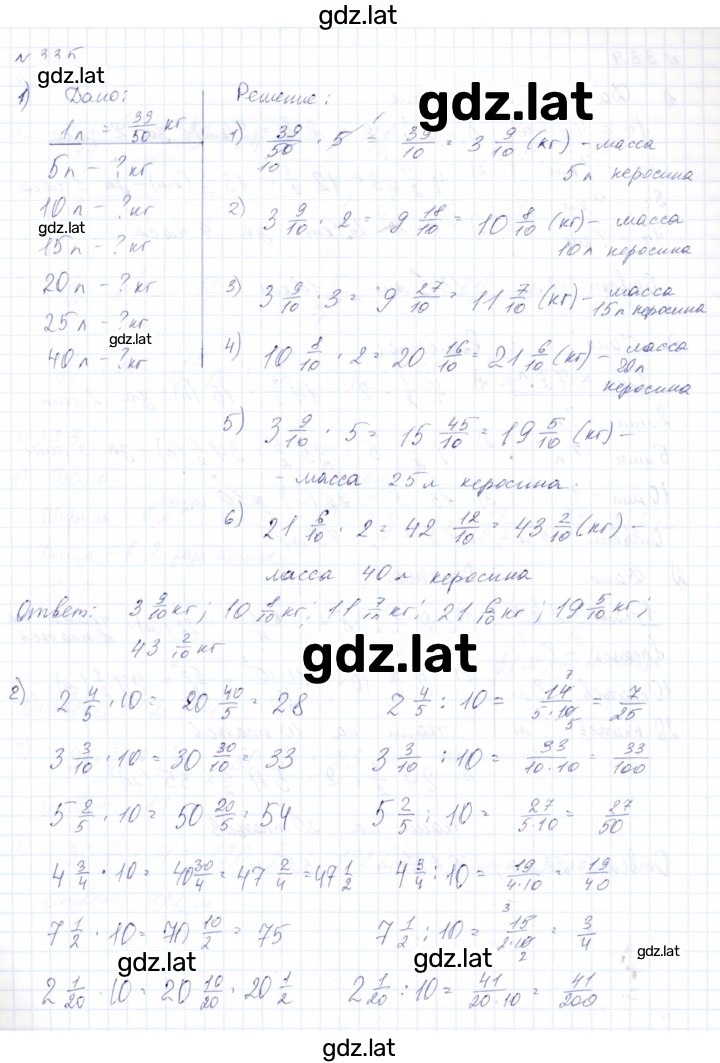 gdz.lat
№ 335
gdz.lat
1) Дано: Решение: gdz.lat
1л = 39/50 кг 1) 39/50 · 5 = 39/10 = 3 9/10 (кг) - масса
5л - ? кг 5л керосина
10л - ? кг 2) 3 9/10 · 2 = 9 18/10 = 10 8/10 (кг) - масса
gdz.lat 10л керосина
15л - ? кг
20л - ? кг 3) 3 9/10 · 3 = 9 27/10 = 11 7/10 (кг) - масса
25л - ? кг 15л керосина
gdz.lat
40л - ? кг 4) 10 8/10 · 2 = 20 16/10 = 21 6/10 (кг) - масса
20л
керосина
5) 3 9/10 · 5 = 15 45/10 = 19 5/10 (кг) -
- масса 25л керосина.
6) 21 6/10 · 2 = 42 12/10 = 43 2/10 (кг) -
масса 40л керосина
Ответ: 3 9/10 кг; 10 8/10 кг; 11 7/10 кг; 21 6/10 кг; 19 5/10 кг;
43 2/10 кг
gdz.lat
2) 2 4/5 · 10 = 20 40/5 = 28 2 4/5 : 10 = 14/5·10 = 7/25
3 3/10 · 10 = 30 30/10 = 33 3 3/10 : 10 = 33/10·10 = 33/100
5 2/5 · 10 = 50 20/5 = 54 5 2/5 : 10 = 27/5·10 = 27/50
4 3/4 · 10 = 40 30/4 = 47 2/4 = 47 1/2 4 3/4 : 10 = 19/4·10 = 19/40
7 1/2 · 10 = 70 10/2 = 75 7 1/2 : 10 = 15/2·10 = 3/4
gdz.lat gdz.lat gdz.lat
2 1/20 · 10 = 20 10/20 = 20 1/2 2 1/20 : 10 = 41/20·10 = 41/200
gdz.lat